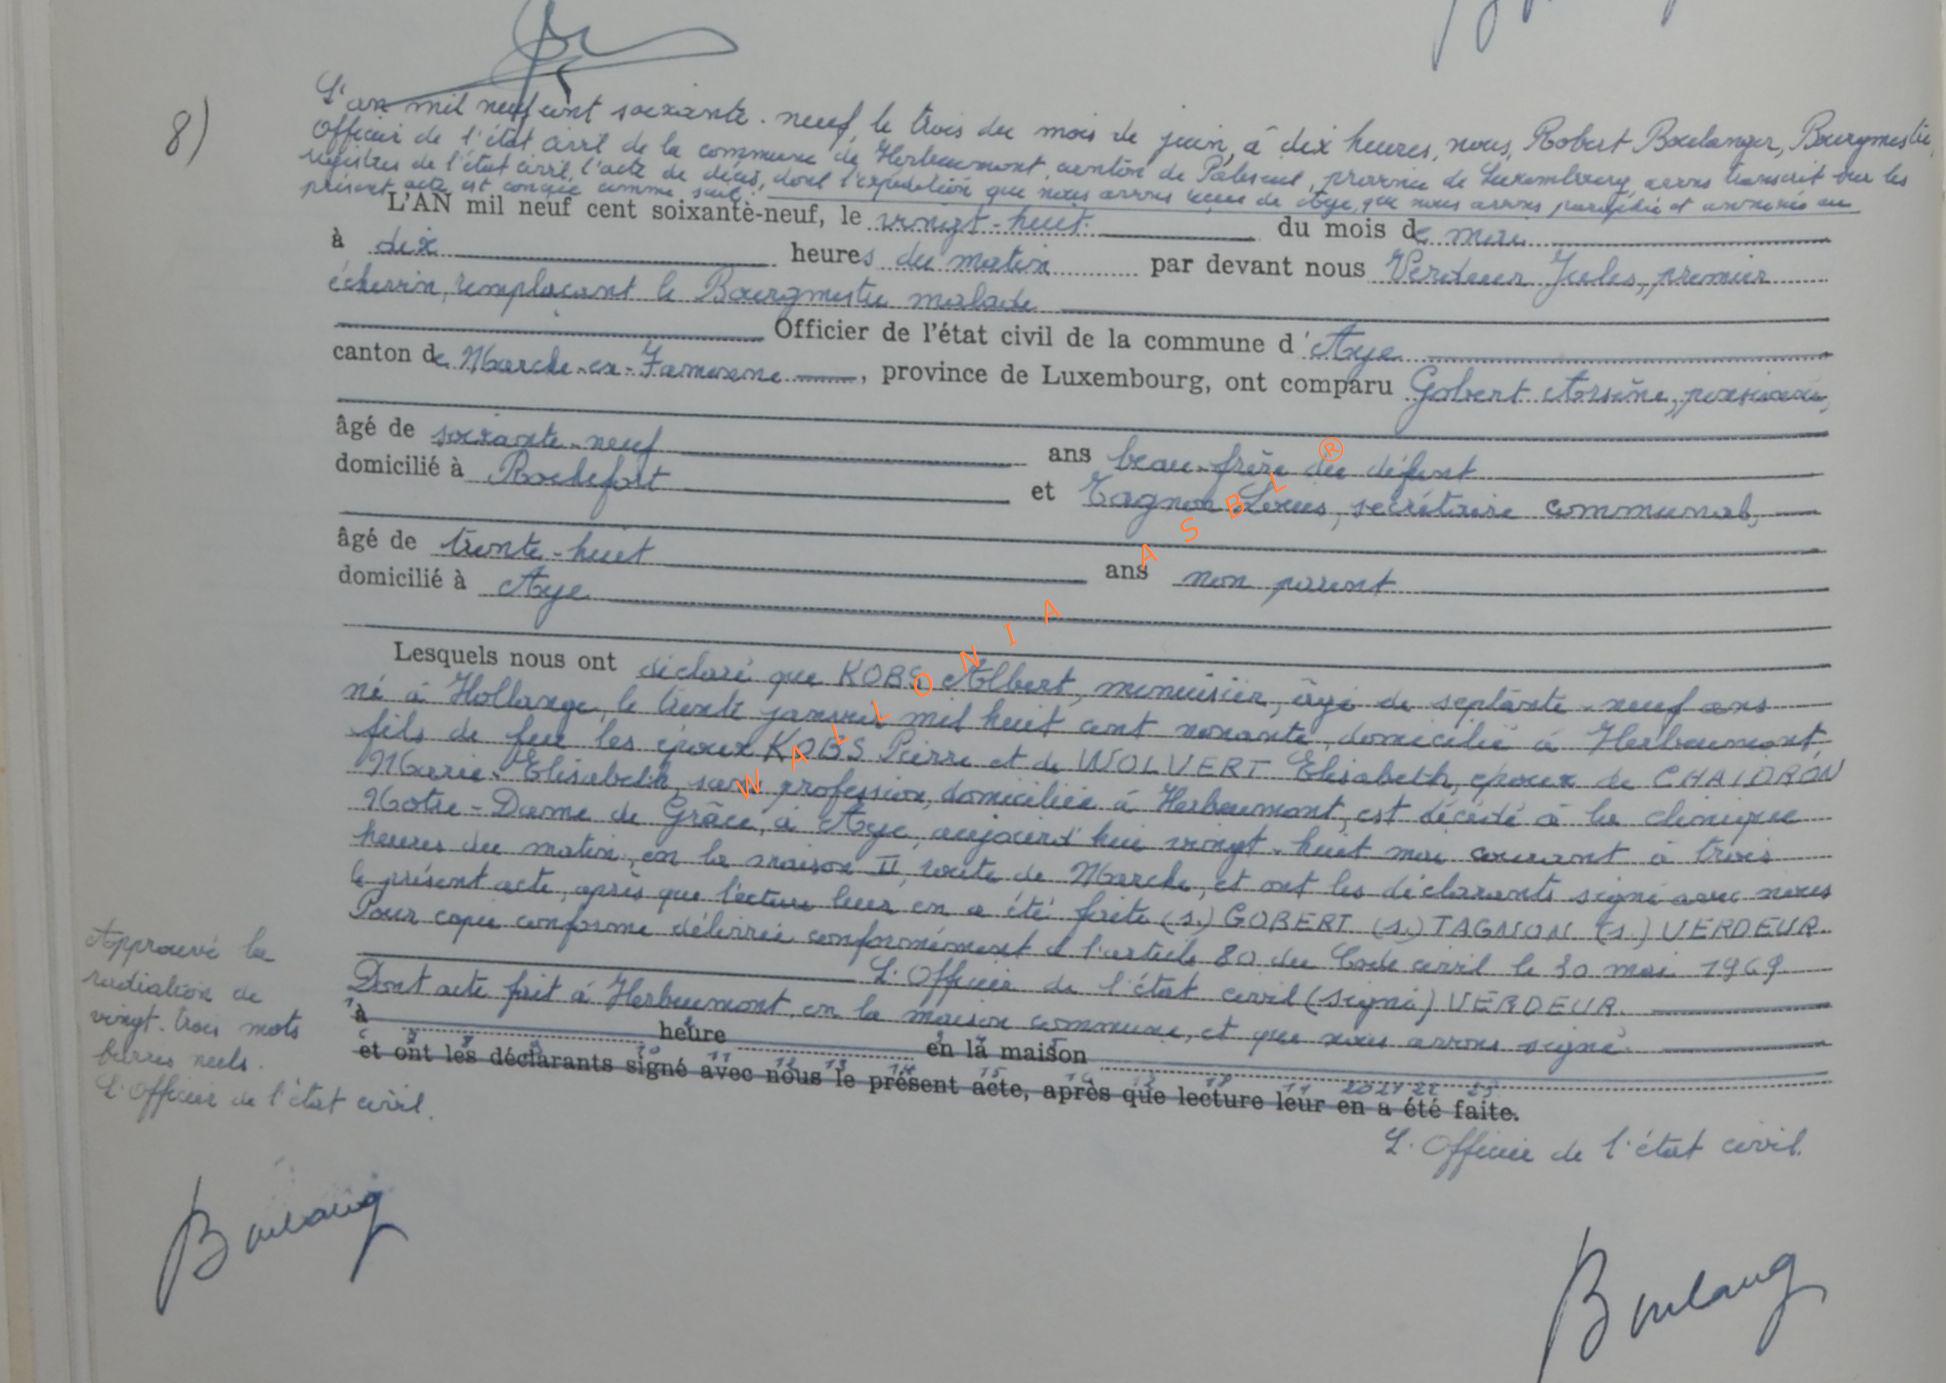 8)
L'an mil neuf cent soixante-neuf, le trois du mois de juin, à dix heures, nous, Robert Boulanger, Bourgmestre,
Officier de l'état civil de la commune de Herbeumont, canton de Paliseul, province de Luxembourg, avons transcrit sur les
registres de l'état civil, l'acte de décès, dont l'expédition que nous avons reçue de Aye, que nous avons paraphée et annexée au
présent acte est conçue comme suit:
L'AN mil neuf cent soixante-neuf, le vingt-huit du mois de mai
à dix heures du matin par devant nous Verdeur Jules, premier
échevin, remplaçant le Bourgmestre malade
Officier de l'état civil de la commune d'Aye
canton de Marche-en-Famenne, province de Luxembourg, ont comparu Gobert Arsène, pensionné,
âgé de soixante-neuf ans beau-frère du défunt
domicilié à Rochefort et Tagnon Louis, secrétaire communal,
âgé de trente-huit ans non parent
domicilié à Aye
Lesquels nous ont déclaré que KOBS Albert, menuisier, âgé de septante-neuf ans
né à Hollange, le trente janvier mil huit cent nonante, domicilié à Herbeumont,
fils de feu les époux KOBS Pierre et de WOLVERT Elisabeth, époux de CHAIDRON
Marie-Elisabeth, sans profession, domiciliée à Herbeumont, est décédé à la clinique
Notre-Dame de Grâce, à Aye, aujourd'hui vingt-huit mai courant à trois
heures du matin, en la maison II, route de Marche, et ont les déclarants signé avec nous
le présent acte, après que lecture leur en a été faite (s.) GOBERT (s.) TAGNON (s.) VERDEUR.
Pour copie conforme délivrée conformément à l'article 80 du Code civil le 30 mai 1969.
L'Officier de l'état civil (signé) VERDEUR.
Dont acte fait à Herbeumont, en la maison commune, et que nous avons signé.
à heure en la maison
et ont les déclarants signé avec nous le présent acte, après que lecture leur en a été faite.
Approuvé la
radiation de
vingt-trois mots
barrés nuls.
L'Officier de l'état civil.
L'Officier de l'état civil.
Boulang
Boulang
WALLONIA ASBL ®